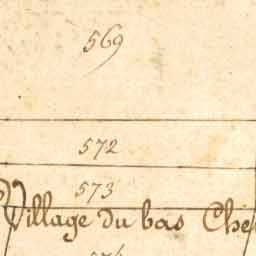 569
572
573
Village du bas